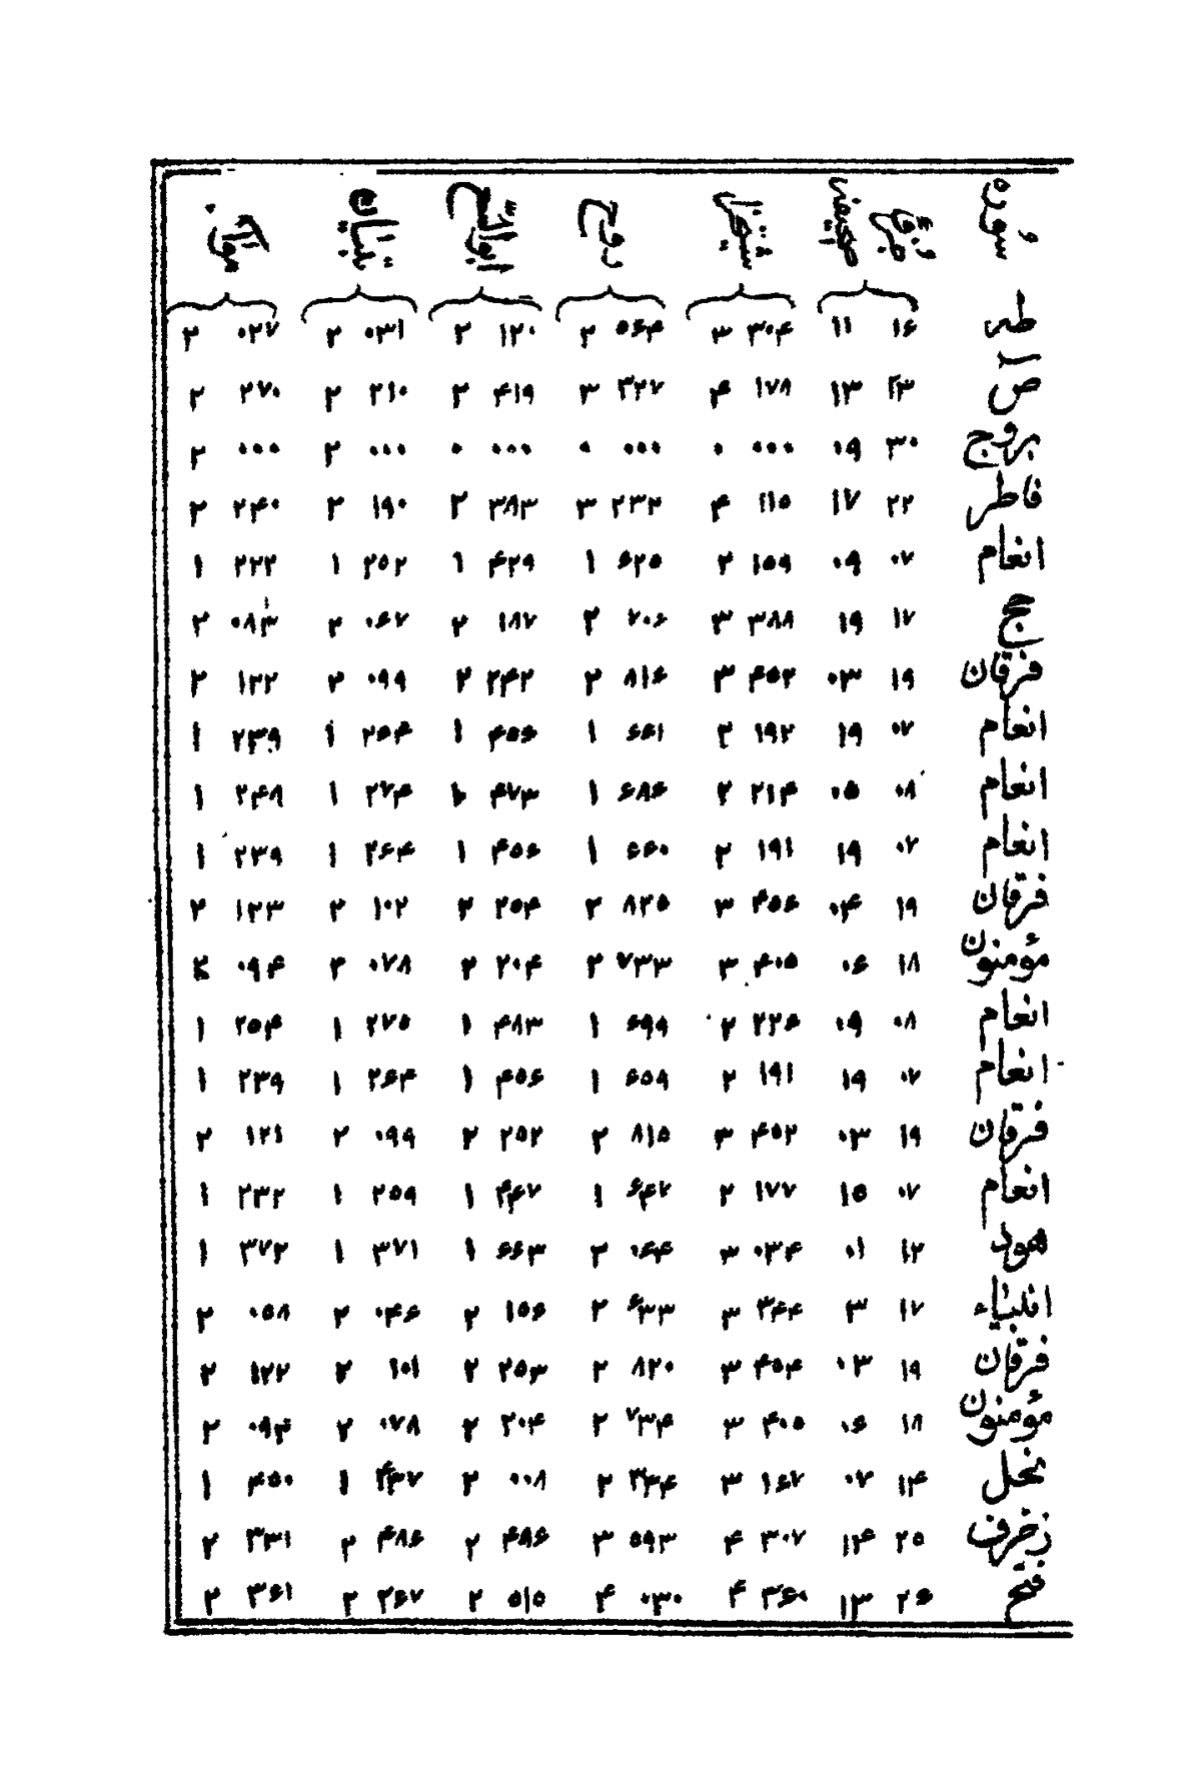 سوره ورق صحیفه شیخزاده روح ابوالفتح تبیان مواهب
طه ۱۶ ۱۱ ۳۰۴ ۳ ۵۶۴ ۲ ۱۲۰ ۲ ۰۳۱ ۲ ۰۲۷ ۲
ص ۲۳ ۱۳ ۱۷۸ ۴ ۳۲۷ ۳ ۴۱۹ ۲ ۲۱۰ ۲ ۲۷۰ ۲
بروج ۳۰ ۰۹ ۰۰۰ ۰ ۰۰۰ ۰ ۰۰۰ ۰ ۰۰۰ ۲ ۰۰۰ ۲
فاطر ۲۲ ۱۷ ۱۱۵ ۴ ۲۳۲ ۳ ۳۸۳ ۲ ۱۹۰ ۲ ۲۴۰ ۲
انعام ۰۷ ۰۹ ۱۵۹ ۲ ۶۲۵ ۱ ۴۲۹ ۱ ۲۵۲ ۱ ۲۲۲ ۱
حج ۱۷ ۱۹ ۳۸۸ ۳ ۷۰۶ ۲ ۱۸۷ ۲ ۰۶۷ ۲ ۰۸۳ ۲
فرقان ۱۹ ۰۳ ۴۵۲ ۳ ۸۱۶ ۲ ۲۴۲ ۲ ۰۹۹ ۲ ۱۲۲ ۲
انعام ۰۷ ۱۹ ۱۹۲ ۲ ۶۶۱ ۱ ۴۵۶ ۱ ۲۵۴ ۱ ۲۳۹ ۱
انعام ۰۸ ۰۵ ۲۱۴ ۲ ۶۸۶ ۱ ۴۷۳ ۱ ۲۷۴ ۱ ۲۴۸ ۱
انعام ۰۷ ۱۹ ۱۹۱ ۲ ۶۶۰ ۱ ۴۵۶ ۱ ۲۶۴ ۱ ۲۳۹ ۱
فرقان ۱۹ ۰۴ ۴۵۶ ۳ ۸۲۵ ۲ ۲۵۴ ۲ ۱۰۲ ۲ ۱۲۳ ۲
مؤمنون ۱۸ ۰۶ ۴۰۵ ۳ ۷۳۳ ۲ ۲۰۴ ۲ ۰۷۸ ۲ ۰۹۴ ۲
انعام ۰۸ ۰۹ ۲۲۶ ۲ ۶۹۹ ۱ ۴۸۳ ۱ ۲۷۵ ۱ ۲۵۴ ۱
انعام ۰۷ ۱۹ ۱۹۱ ۲ ۶۵۹ ۱ ۴۵۶ ۱ ۲۶۴ ۱ ۲۳۹ ۱
فرقان ۱۹ ۰۳ ۴۵۲ ۳ ۸۱۵ ۲ ۲۵۲ ۲ ۰۹۹ ۲ ۱۲۱ ۲
انعام ۰۷ ۱۵ ۱۷۷ ۲ ۶۴۷ ۱ ۴۴۷ ۱ ۲۵۹ ۱ ۲۳۲ ۱
هود ۱۲ ۰۱ ۰۳۴ ۳ ۰۶۴ ۲ ۶۶۳ ۱ ۳۷۱ ۱ ۳۷۲ ۱
انبیاء ۱۷ ۳ ۳۴۴ ۳ ۶۳۳ ۲ ۱۵۶ ۲ ۰۴۶ ۲ ۰۵۸ ۲
فرقان ۱۹ ۰۳ ۴۵۴ ۳ ۸۲۰ ۲ ۲۵۳ ۲ ۱۰۱ ۲ ۱۲۲ ۲
مؤمنون ۱۸ ۰۶ ۴۰۵ ۳ ۷۳۴ ۲ ۲۰۴ ۲ ۰۷۸ ۲ ۰۹۴ ۲
نحل ۱۴ ۰۷ ۱۶۷ ۳ ۳۳۴ ۲ ۰۰۸ ۲ ۴۳۷ ۱ ۴۵۰ ۱
زخرف ۲۵ ۱۴ ۳۰۷ ۴ ۵۹۳ ۳ ۴۸۶ ۲ ۴۸۶ ۲ ۳۳۱ ۲
فتح ۲۶ ۱۳ ۳۶۰ ۴ ۰۳۰ ۴ ۵۱۵ ۲ ۲۶۷ ۲ ۳۶۱ ۲